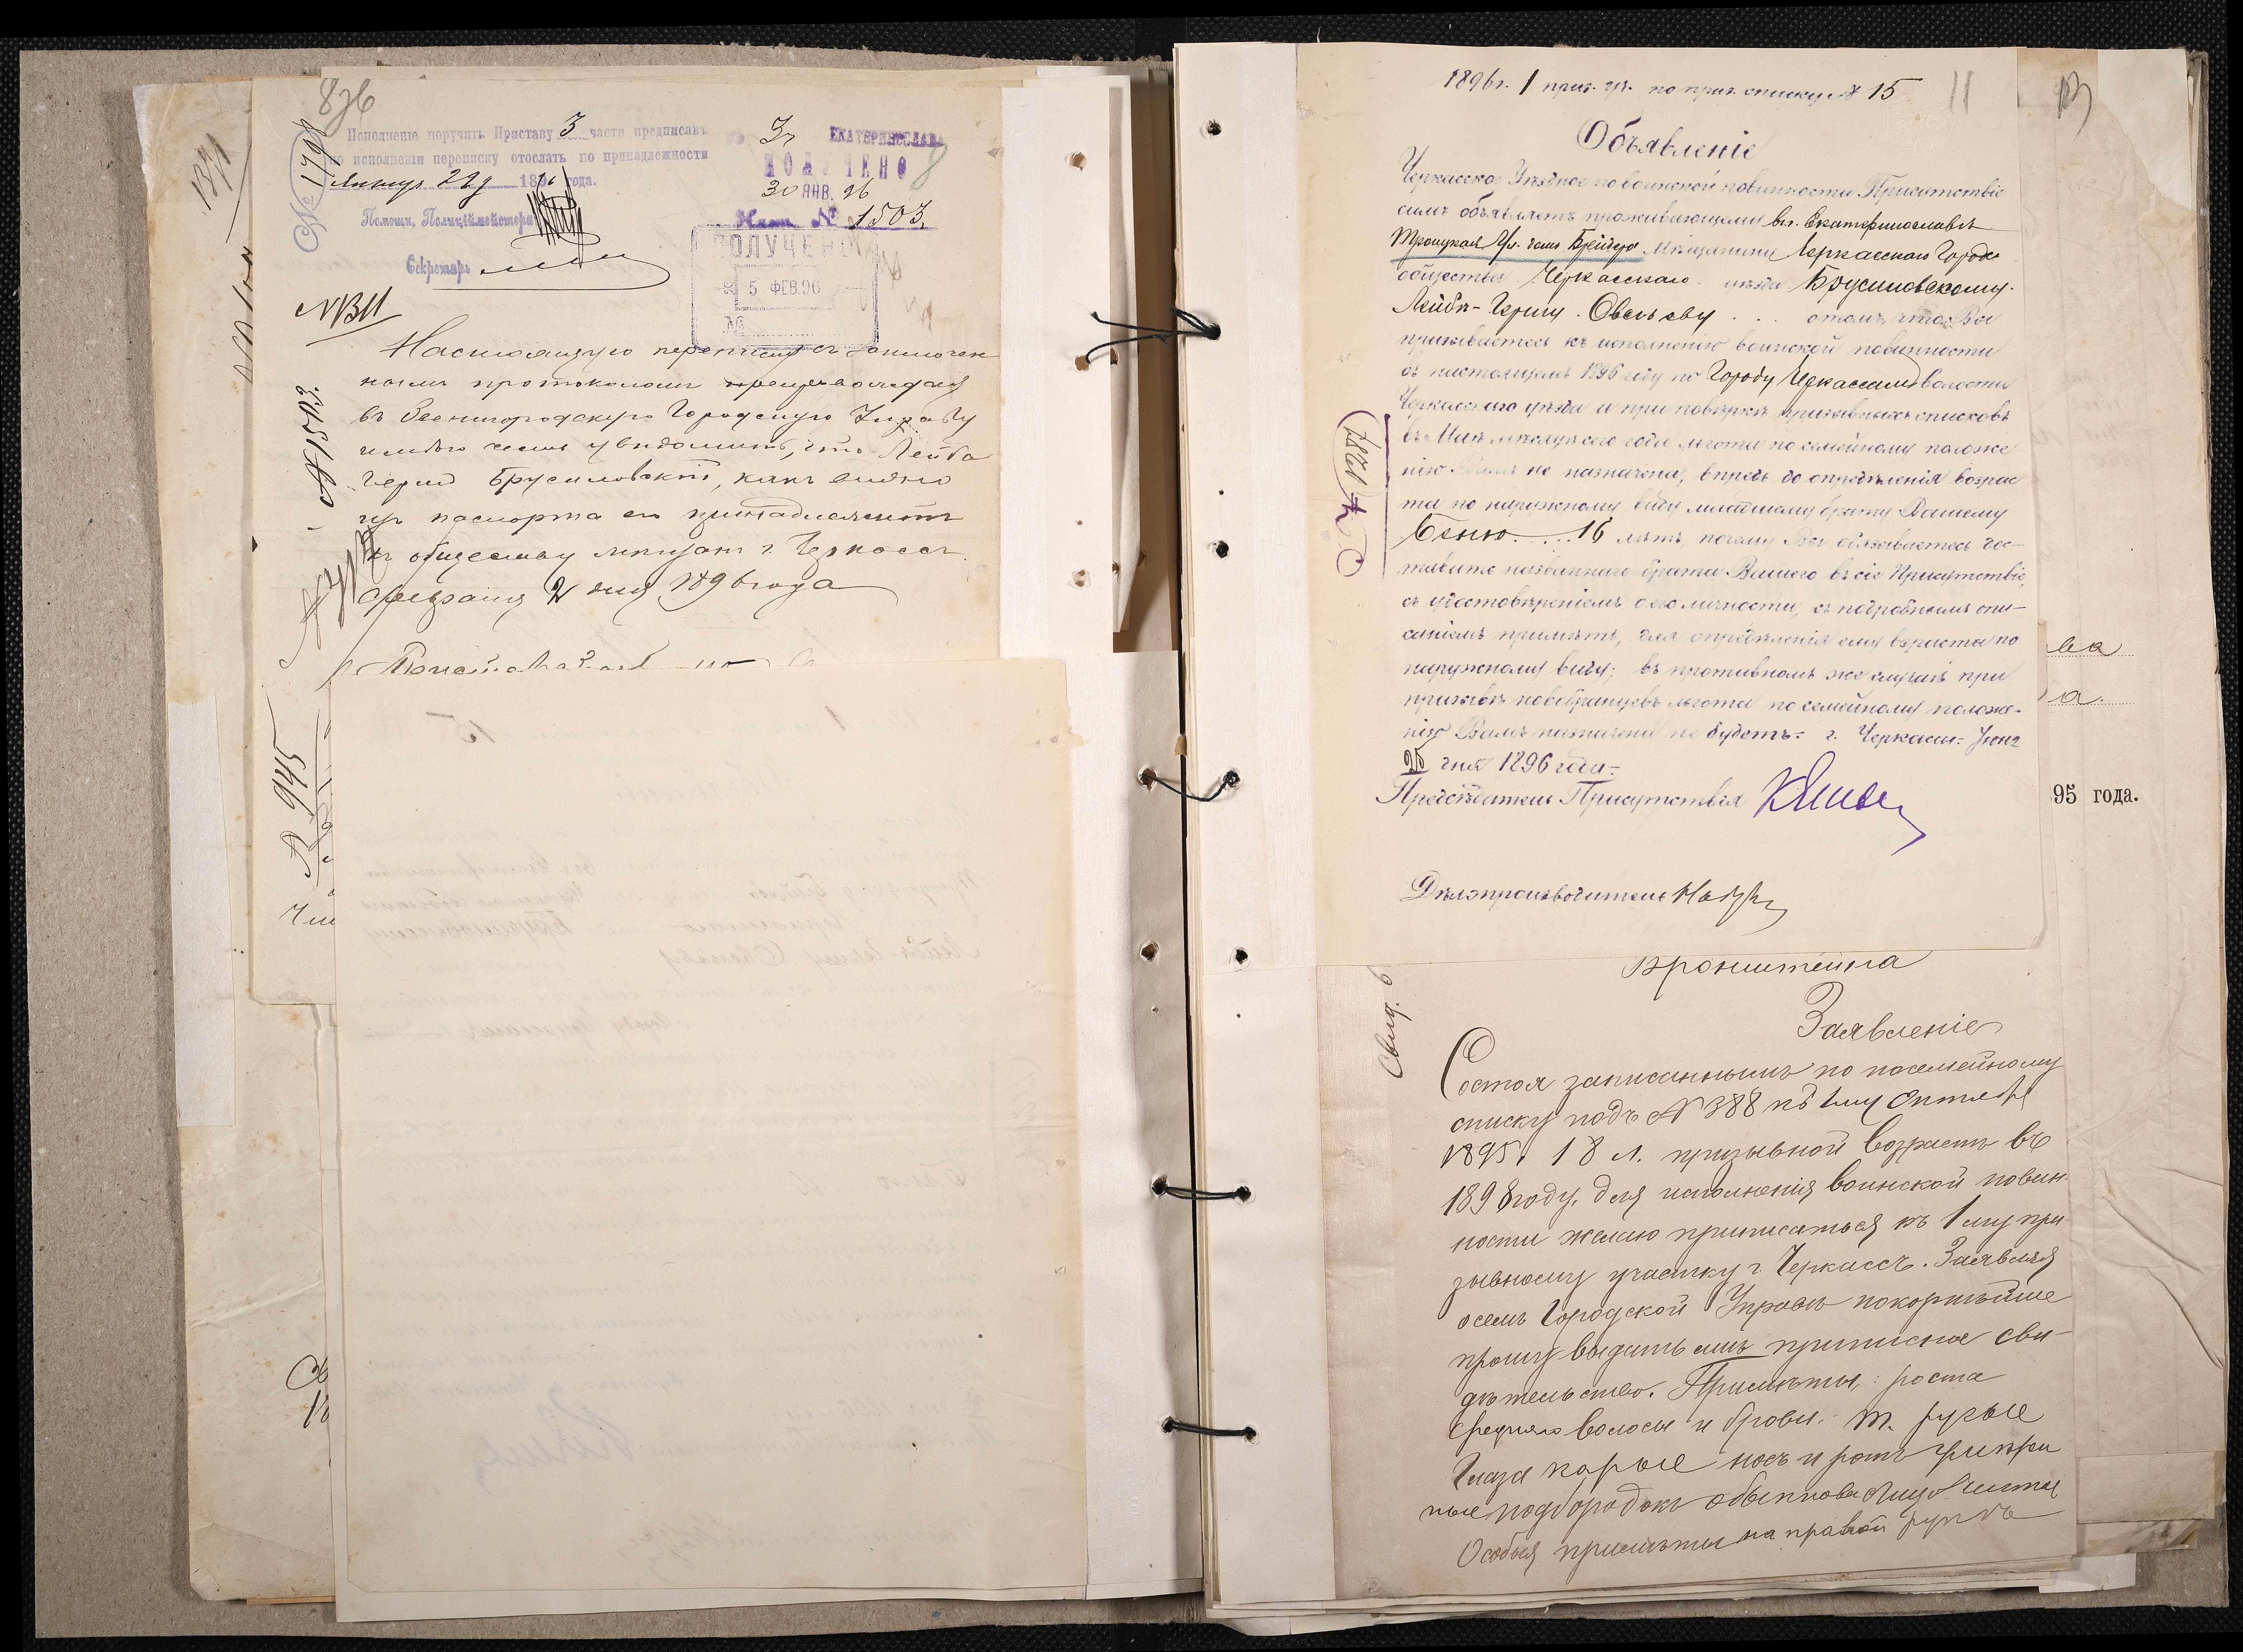 836
Исполненіе поручить Приставу 3 части предписавъ
по исполненіи переписку отослать по принадлежности
Января 29 д 1896 года.
Помощн. Полиціймейстера
Секретарь
№ 1791
1371
3 ч ЕКАТЕРИНОСЛАВА
ПОЛУЧЕНО
30 ЯНВ. 96
Наст. № 1503.
8
ПОЛУЧЕНО
5 ФЕВ. 96
№
М В Д
Настоящую переписку съ
нымъ протоколомъ препровождая
въ Звенигородскую Городскую Управу
честь увѣдомить, что Лейба
Герш Брусиловскій, какъ видно
изъ паспорта его принадлежитъ
къ обществу мѣщанъ г. Черкассъ.
Февраля 2 дня 1896 года
№ 1503.
945
1896 г. 1 приз. уч. по приз. списку № 15
11
13
Объявленіе
Черкасское Уѣздное по воинской повинности Присутствіе
симъ объявляетъ проживающему въ г. Екатеринославѣ
Троицкая Ул. домъ Брейера мѣщанину Черкасскаго Город.
общества Черкасскаго уѣзда Брусиловскому
Лейбѣ-Гершу Овсѣеву . . . о томъ, что Вы
призываетесь къ исполненію воинской повинности
въ настоящемъ 1896 году по Городу Черкассамъ волости
Черкасскаго уѣзда и при повѣркѣ призывныхъ списковъ
въ Маѣ мѣсяцѣ сего года льгота по семейному положе
нію Вамъ не назначена, впредь до опредѣленія возрас
та по наружному виду младшему брату Вашему
Беню . . . 16 лѣтъ, почему Вы обязываетесь дос-
тавить названнаго брата Вашего въ сіе Присутствіе,
съ удостовѣреніемъ о его личности, съ подробнымъ опи-
саніемъ примѣтъ, для опредѣленія ему возраста по
наружному виду; въ противномъ же случаѣ при
призывѣ новобранцевъ льгота по семейному положе-
нію Вамъ назначена не будетъ. г. Черкассы. Іюня
25 дня 1896 года.
Предсѣдатель Присутствія
Дѣлопроизводитель
ва
а.
95 года.
Бронштейна
Заявленіе
Состоя записаннымъ по посемейному
списку подъ № 388 къ 1му Октября
1895 г. 18 л. призывной возрастъ въ
1898 году, для исполненія воинской повин
ности желаю приписаться къ 1 му при
зывному участку г. Черкассъ. Заявляя
о семъ Городской Управѣ покорнѣйше
прошу выдать мнѣ приписное сви-
дѣтельство. Примѣты: роста
средняго волосы и брови т. русые
Глаза карые носъ и ротъ умѣрен
ные подбородокъ обыкнове лицо чистое
Особыя примѣты на правой рукѣ